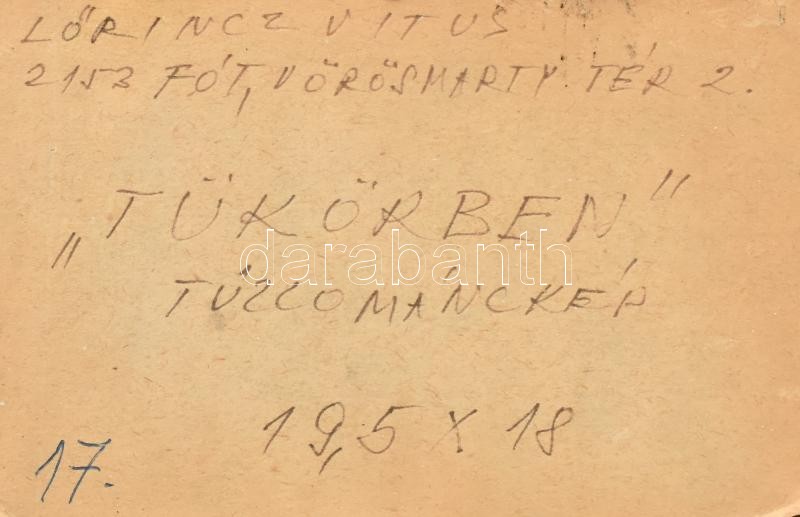 LŐRINCZ VITUS
2153 FÓT, VÖRÖSMARTY TÉR 2.
„TÜKÖRBEN”
darabanth
TŰZZOMÁNCKÉP
19,5 X 18
17.